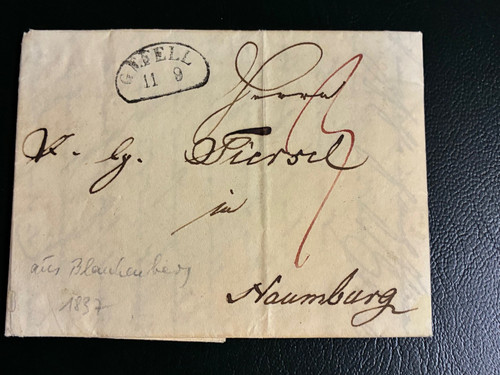 GEFELL
11 9
Herrn
F. Lg. Tiersel
in
Naumburg
3
aus Blankenberg
1837